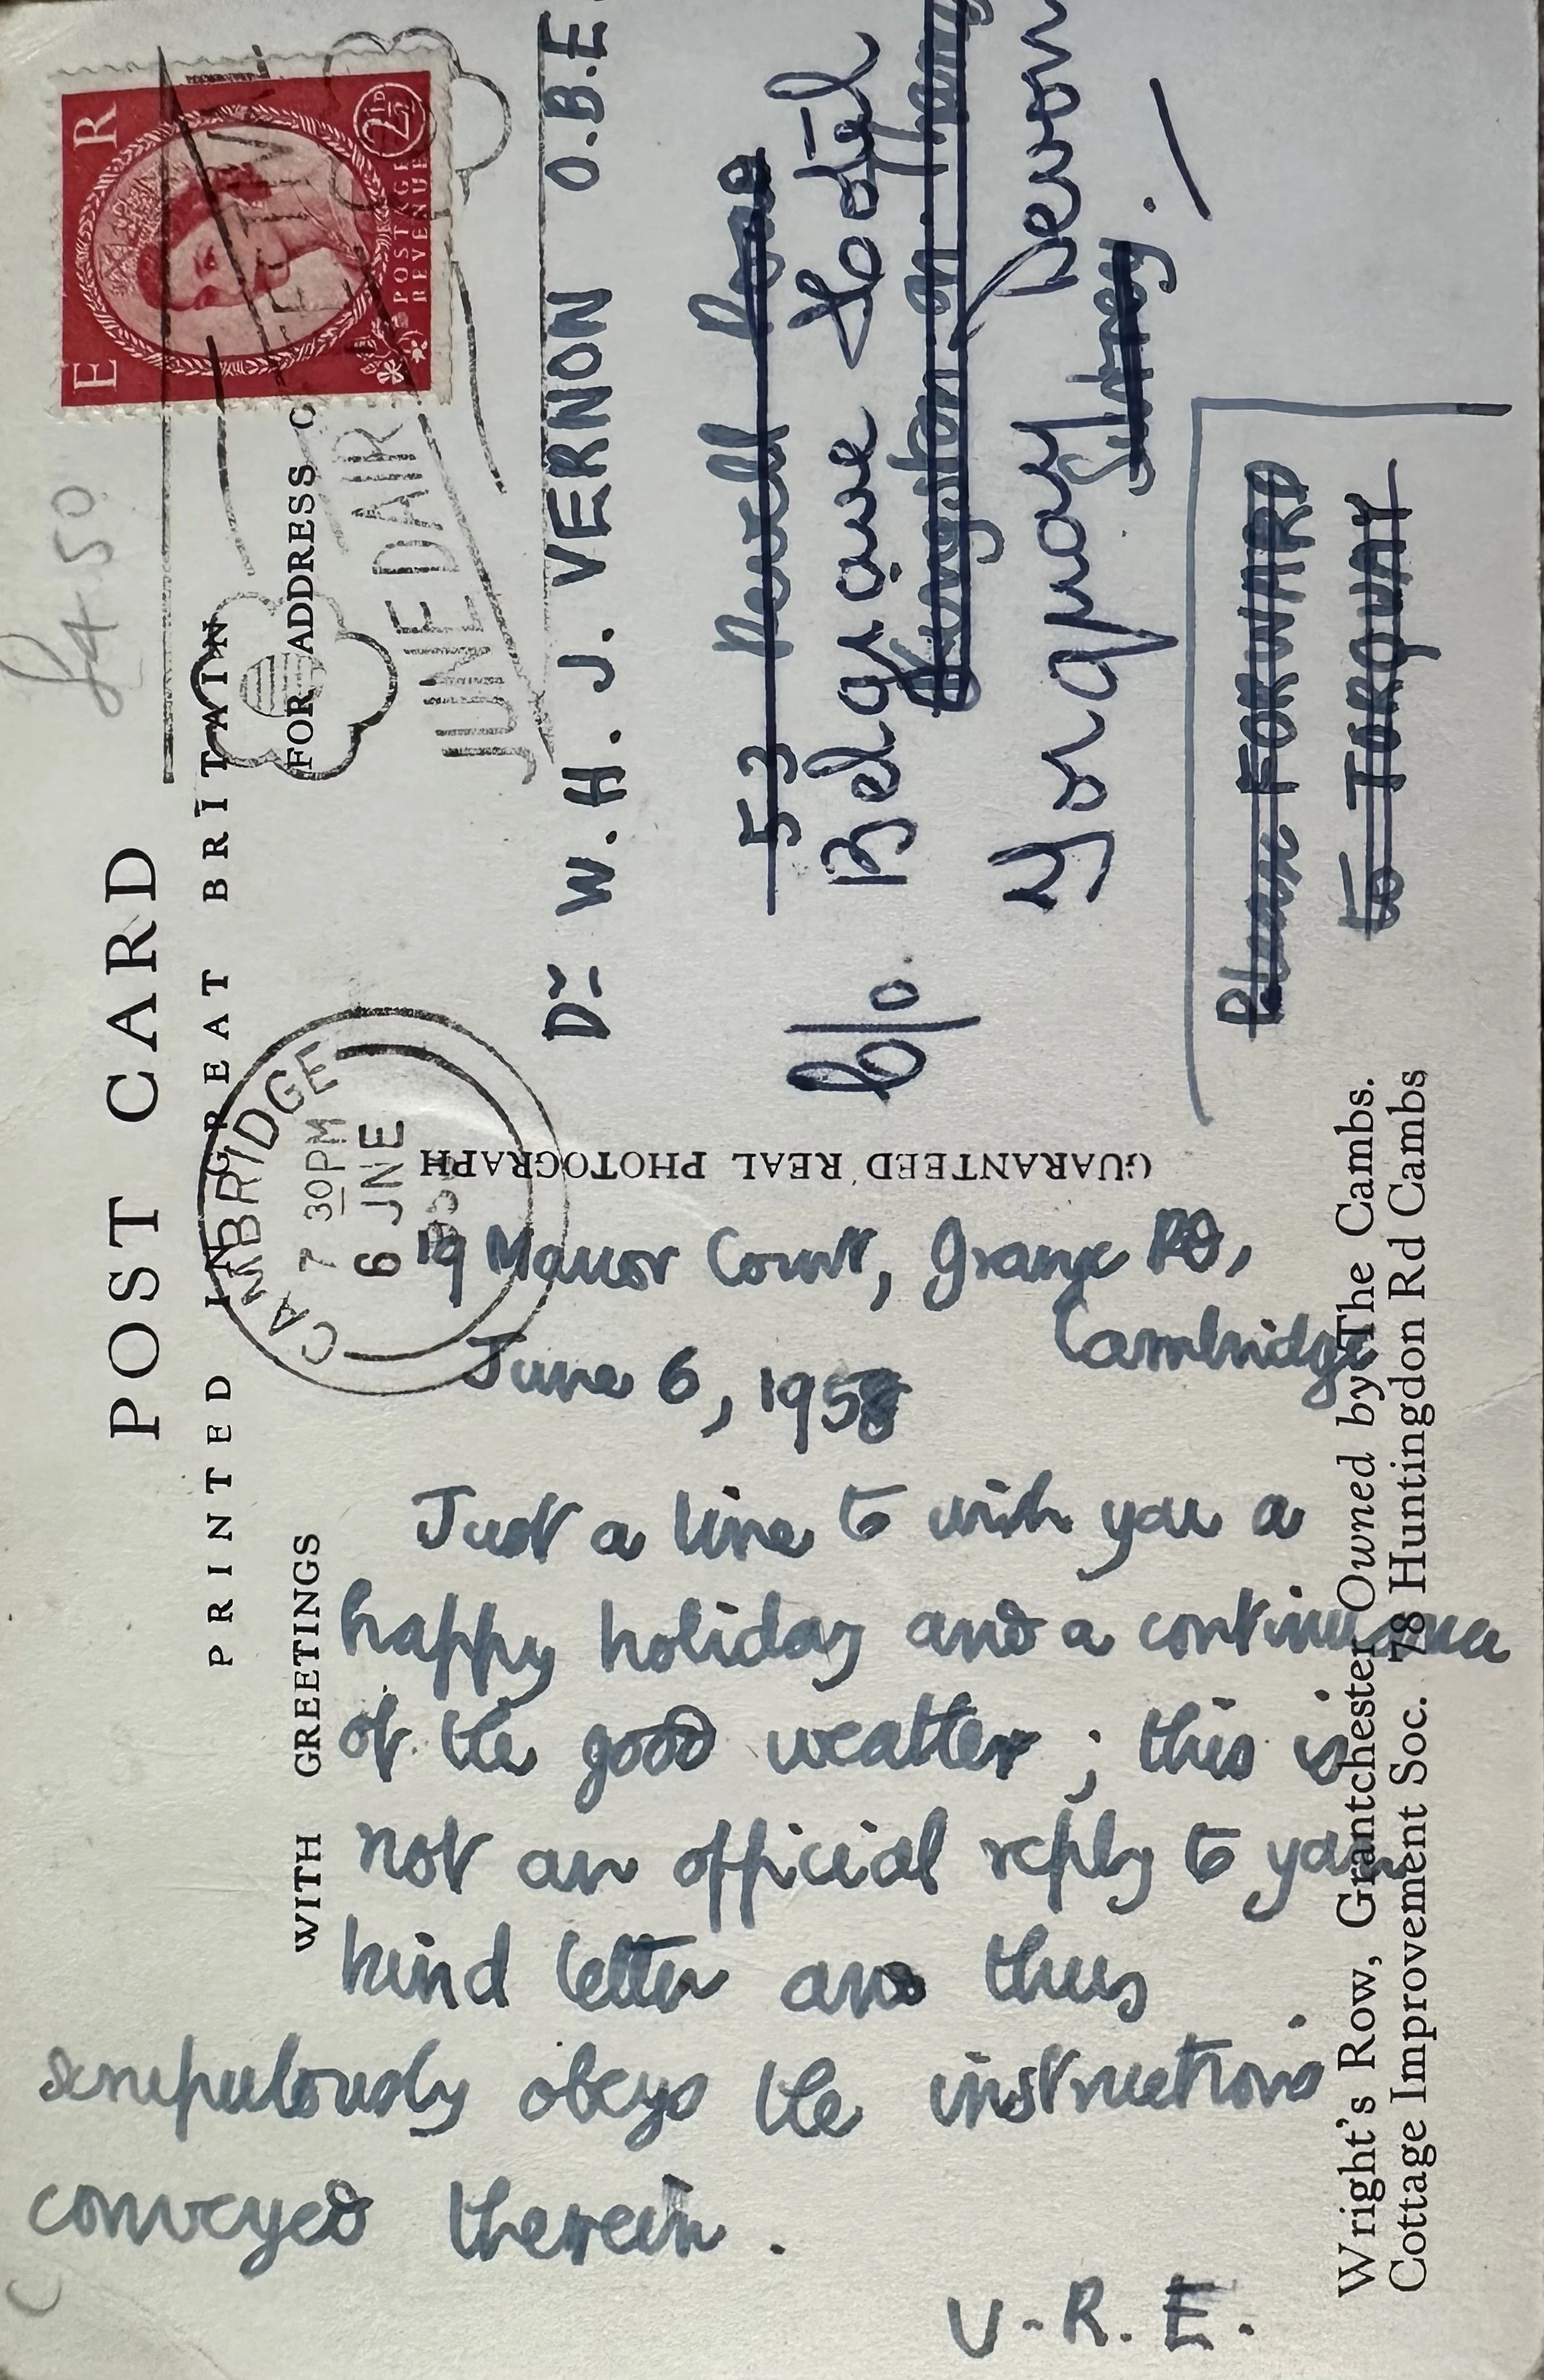 POST CARD
PRINTED IN GREAT BRITAIN
WITH GREETINGS
FOR ADDRESS
£4.50
E R
POSTAGE
REVENUE
2½D
CAMBRIDGE
7 30PM
6 JNE
JUNE DAIRY
GUARANTEED REAL PHOTOGRAPH
19 Manor Court, Grange RD,
Cambridge
June 6, 1958
Just a line to wish you a
happy holiday and a continuance
of the good weather; this is
not an official reply to your
kind letter and thus
scrupulously obeys the instructions
conveyed therein.
U.R.E.
Dr W. H. J. VERNON O.B.E.
53
c/o. Belgrave Hotel
Kingston on Thames
Torquay Devon
Surrey.
Please FORWARD
to TORQUAY
Wright's Row, Grantchester Owned by The Cambs.
Cottage Improvement Soc. 78 Huntingdon Rd Cambs